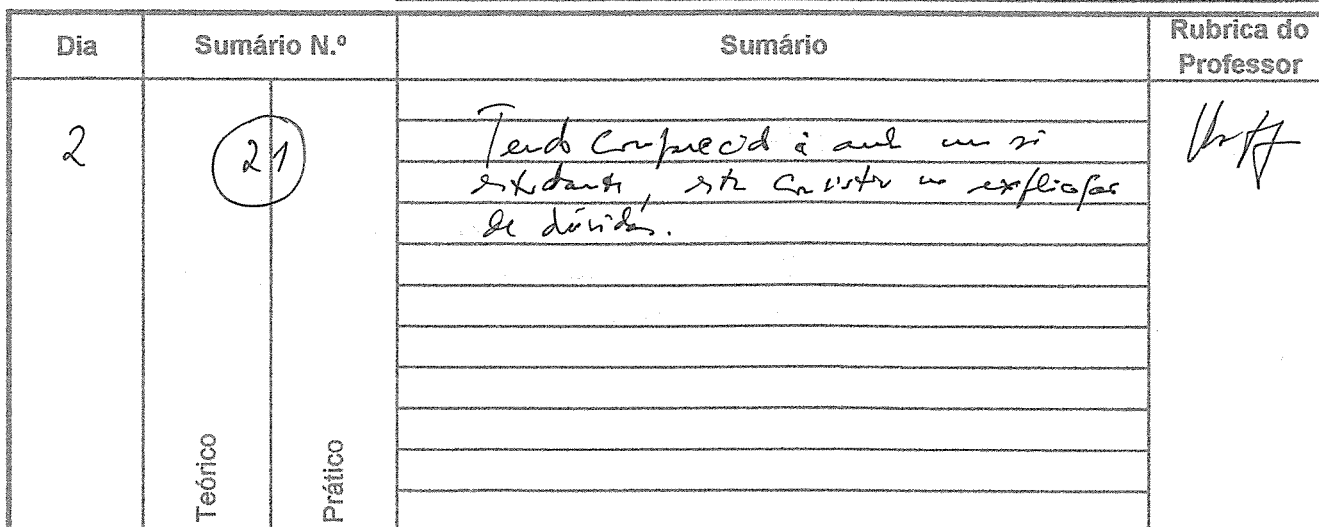 Dia Sumário N.º Sumário Rubrica do Professor
2 21 Tendo comparecido à aula um só
estudante, esta consistiu na explicação
de dúvidas.
Teórico Prático